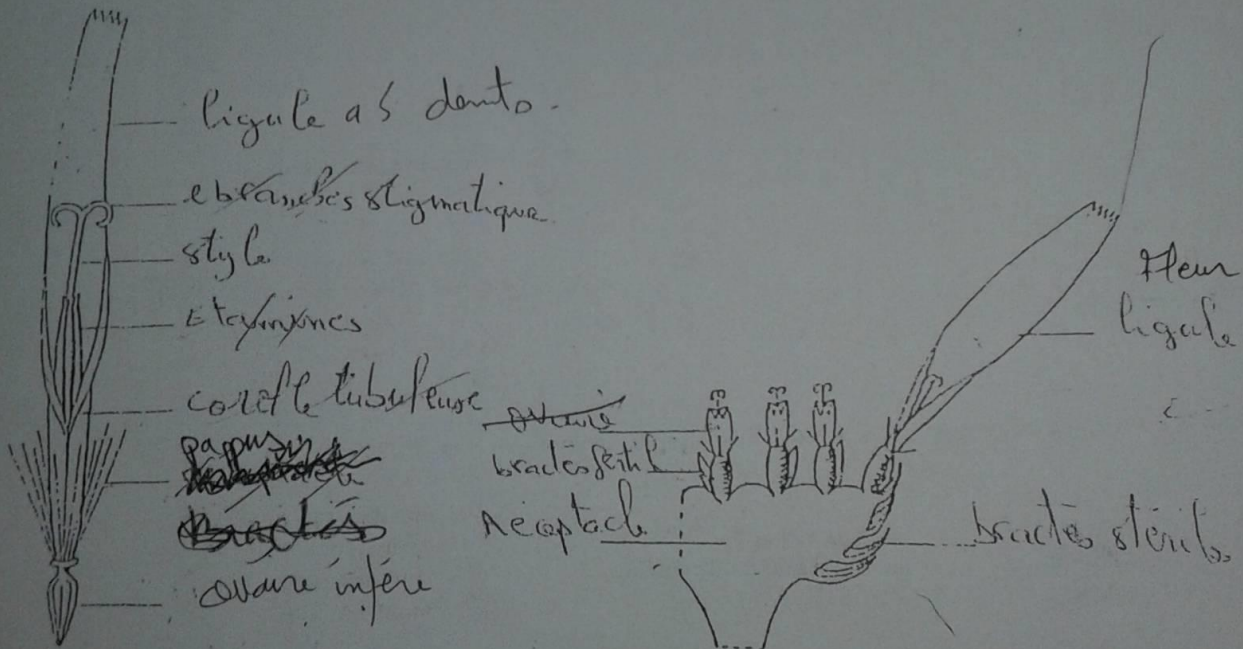 ligule a 5 dents.
ebranchés stigmatique
style
Etamines
corolle tubuleuse
pappus
Bractés
ovaire infére
ovaire
bractés fertil
Réceptacle
Fleur
ligule
bractés stérils